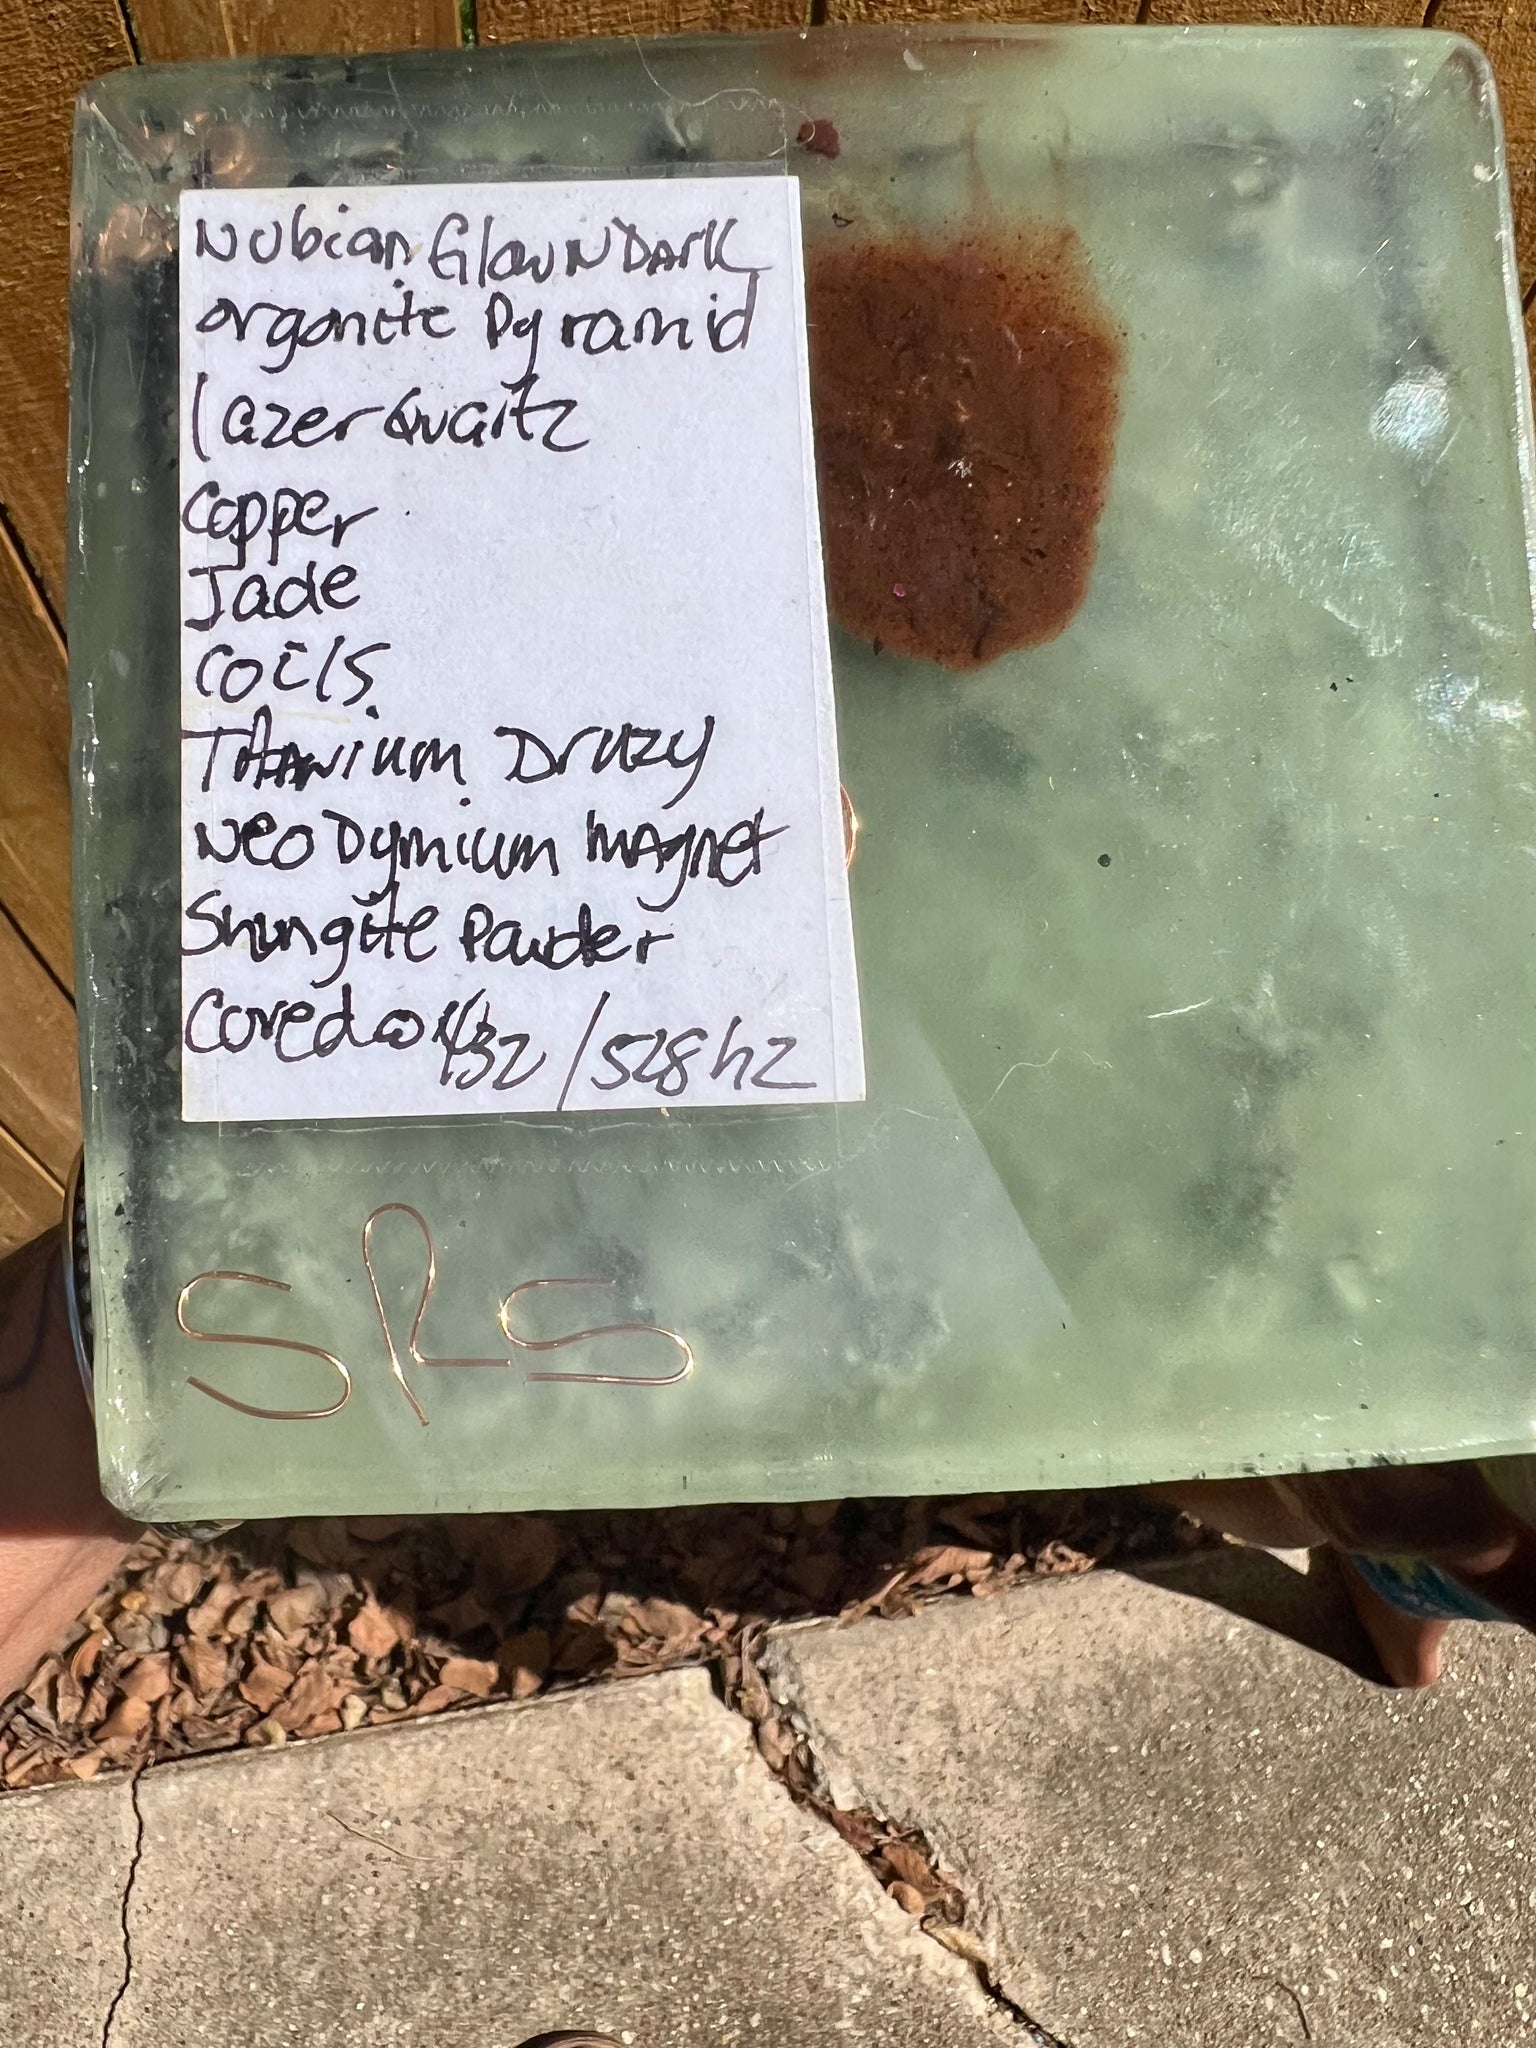 Nubian GlowNDark
orgonite Pyramid
lazer Quartz
Copper
Jade
Coils
Titanium Druzy
NeoDymium magnet
Shungite Powder
Cored @ 432/528hz
SRS